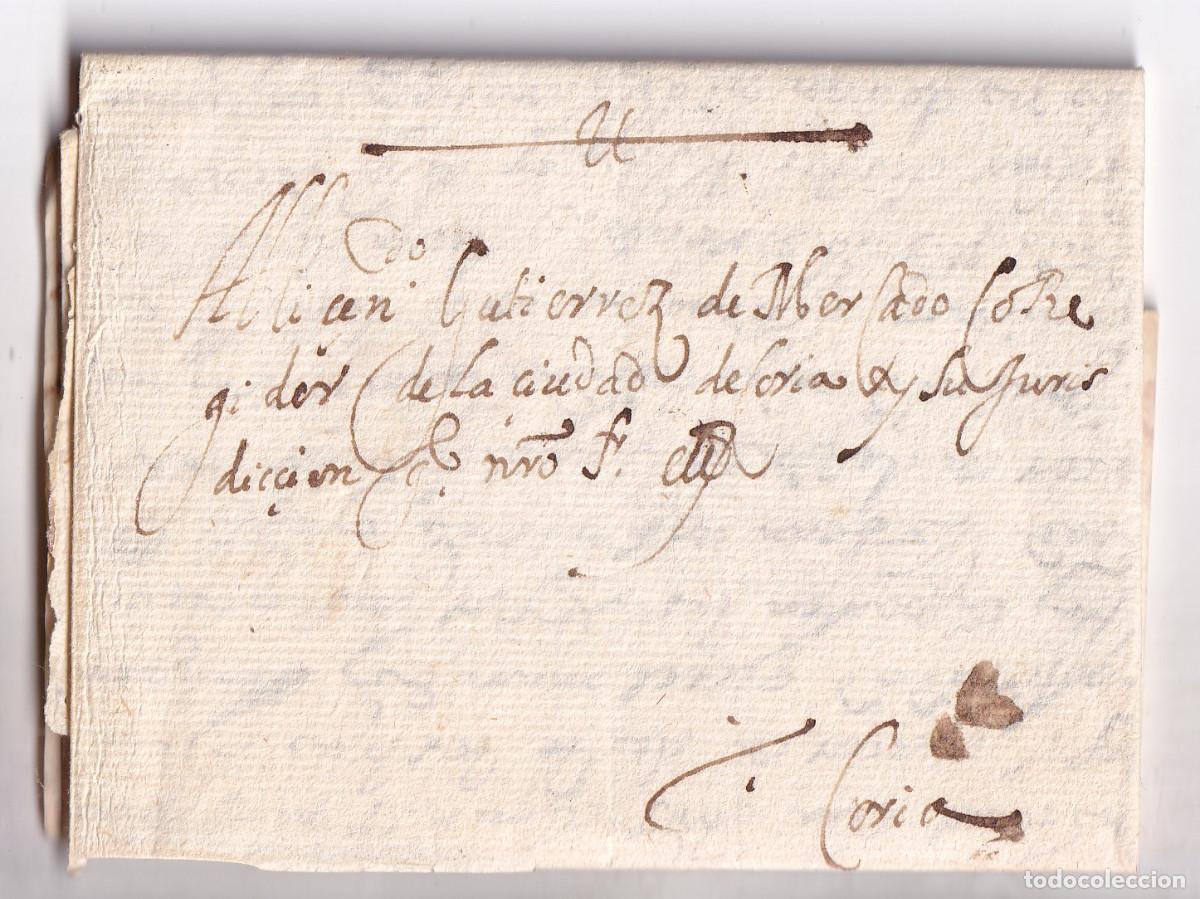 Al licen.do Gutierrez de Mercado Corre
gidor de la ciudad de Coria y su Juris
diccion g.e nro s.r
Coria
todocoleccion